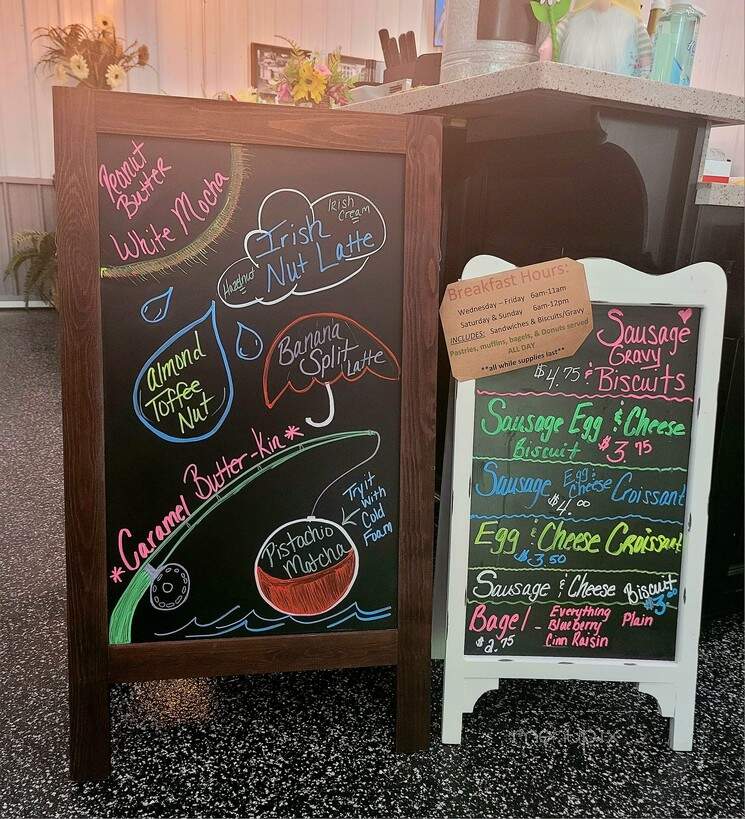 Peanut
Butter
White Mocha
Irish
Cream
Irish
Nut Latte
Hazelnut
Almond
Toffee
Nut
Banana
Split
Latte
*Caramel Butter-Kin*
Try it
with
Cold
Foam
Pistachio
Matcha
Breakfast Hours:
Wednesday – Friday 6am-11am
Saturday & Sunday 6am-12pm
INCLUDES: Sandwiches & Biscuits/Gravy
Pastries, muffins, bagels, & Donuts served
ALL DAY
**all while supplies last**
Sausage
Gravy
$4.75 & Biscuits
Sausage Egg & Cheese
Biscuit $3.75
Sausage Egg & Cheese Croissant
$4.00
Egg & Cheese Croissant
$3.50
Sausage & Cheese Biscuit
$3.00
Bagel - Everything Plain
Blueberry
$2.75 Cinn Raisin
menupix